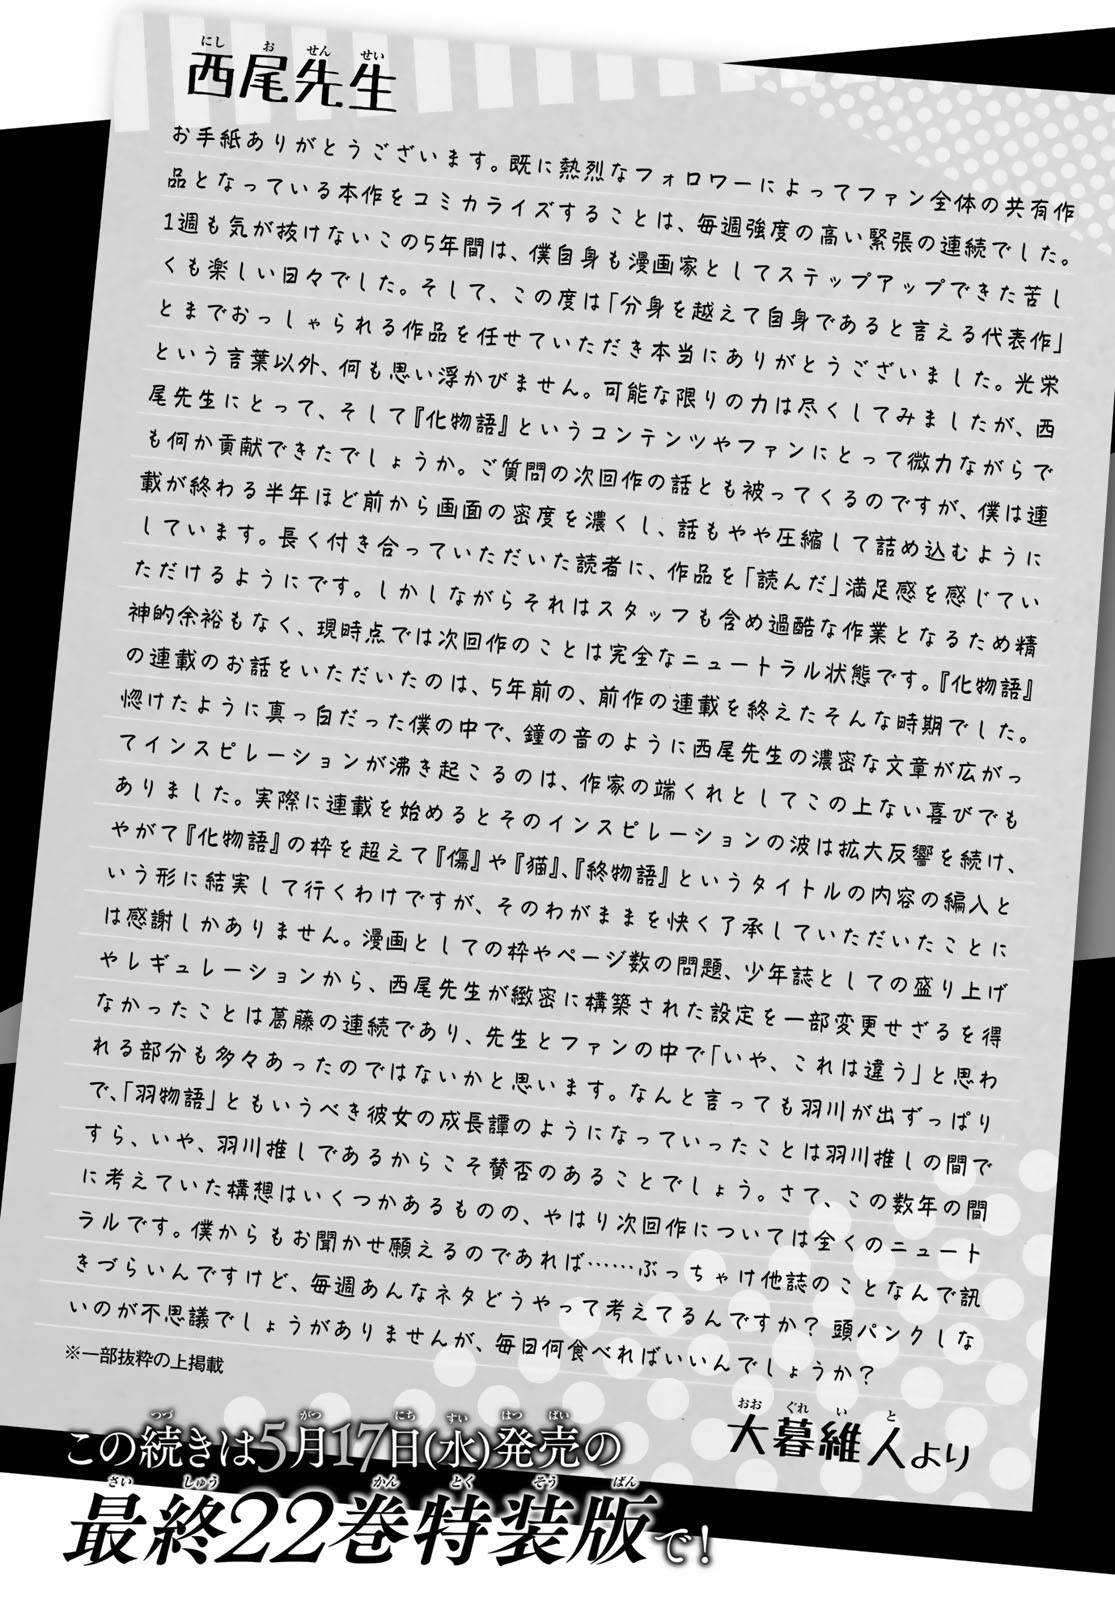 西尾先生
お手紙ありがとうございます。既に熱烈なフォロワーによってファン全体の共有作
品となっている本作をコミカライズすることは、毎週強度の高い緊張の連続でした。
1週も気が抜けないこの5年間は、僕自身も漫画家としてステップアップできた苦し
くも楽しい日々でした。そして、この度は「分身を越えて自身であると言える代表作」
とまでおっしゃられる作品を任せていただき本当にありがとうございました。光栄
という言葉以外、何も思い浮かびません。可能な限りの力は尽くしてみましたが、西
尾先生にとって、そして『化物語』というコンテンツやファンにとって微力ながらで
も何か貢献できたでしょうか。ご質問の次回作の話とも被ってくるのですが、僕は連
載が終わる半年ほど前から画面の密度を濃くし、話もやや圧縮して詰め込むように
しています。長く付き合っていただいた読者に、作品を「読んだ」満足感を感じてい
ただけるようにです。しかしながらそれはスタッフも含め過酷な作業となるため精
神的余裕もなく、現時点では次回作のことは完全なニュートラル状態です。『化物語』
の連載のお話をいただいたのは、5年前の、前作の連載を終えたそんな時期でした。
惚けたように真っ白だった僕の中で、鐘の音のように西尾先生の濃密な文章が広がっ
てインスピレーションが沸き起こるのは、作家の端くれとしてこの上ない喜びでも
ありました。実際に連載を始めるとそのインスピレーションの波は拡大反響を続け、
やがて『化物語』の枠を超えて『傷』や『猫』、『終物語』というタイトルの内容の編入と
いう形に結実して行くわけですが、そのわがままを快く了承していただいたことに
は感謝しかありません。漫画としての枠やページ数の問題、少年誌としての盛り上げ
やレギュレーションから、西尾先生が緻密に構築された設定を一部変更せざるを得
なかったことは葛藤の連続であり、先生とファンの中で「いや、これは違う」と思わ
れる部分も多々あったのではないかと思います。なんと言っても羽川が出ずっぱり
で、「羽物語」ともいうべき彼女の成長譚のようになっていったことは羽川推しの間で
すら、いや、羽川推しであるからこそ賛否のあることでしょう。さて、この数年の間
に考えていた構想はいくつかあるものの、やはり次回作については全くのニュート
ラルです。僕からもお聞かせ願えるのであれば……ぶっちゃけ他誌のことなんで訊
きづらいんですけど、毎週あんなネタどうやって考えてるんですか？頭パンクしな
いのが不思議でしょうがありませんが、毎日何食べればいいんでしょうか？
※一部抜粋の上掲載
大暮維人より
この続きは5月17日(水)発売の
最終22巻特装版で！